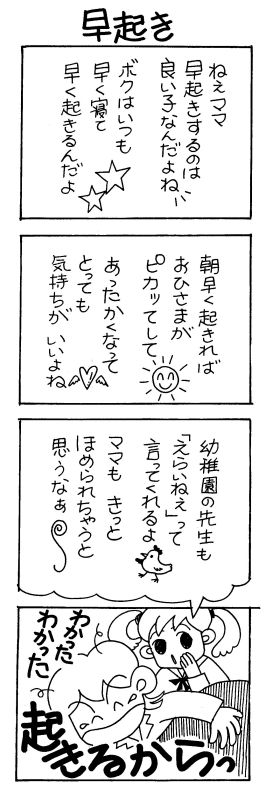 早起き
ねえママ
早起きするのは
良い子なんだよね
ボクはいつも
早く寝て
早く起きるんだよ
朝早く起きれば
おひさまが
ピカッてして
あったかくなって
とっても
気持ちが いいよね
幼稚園の先生も
「えらいねぇ」って
言ってくれるよ
ママも きっと
ほめられちゃうと
思うなぁ
わかった
わかった
起きるからっ